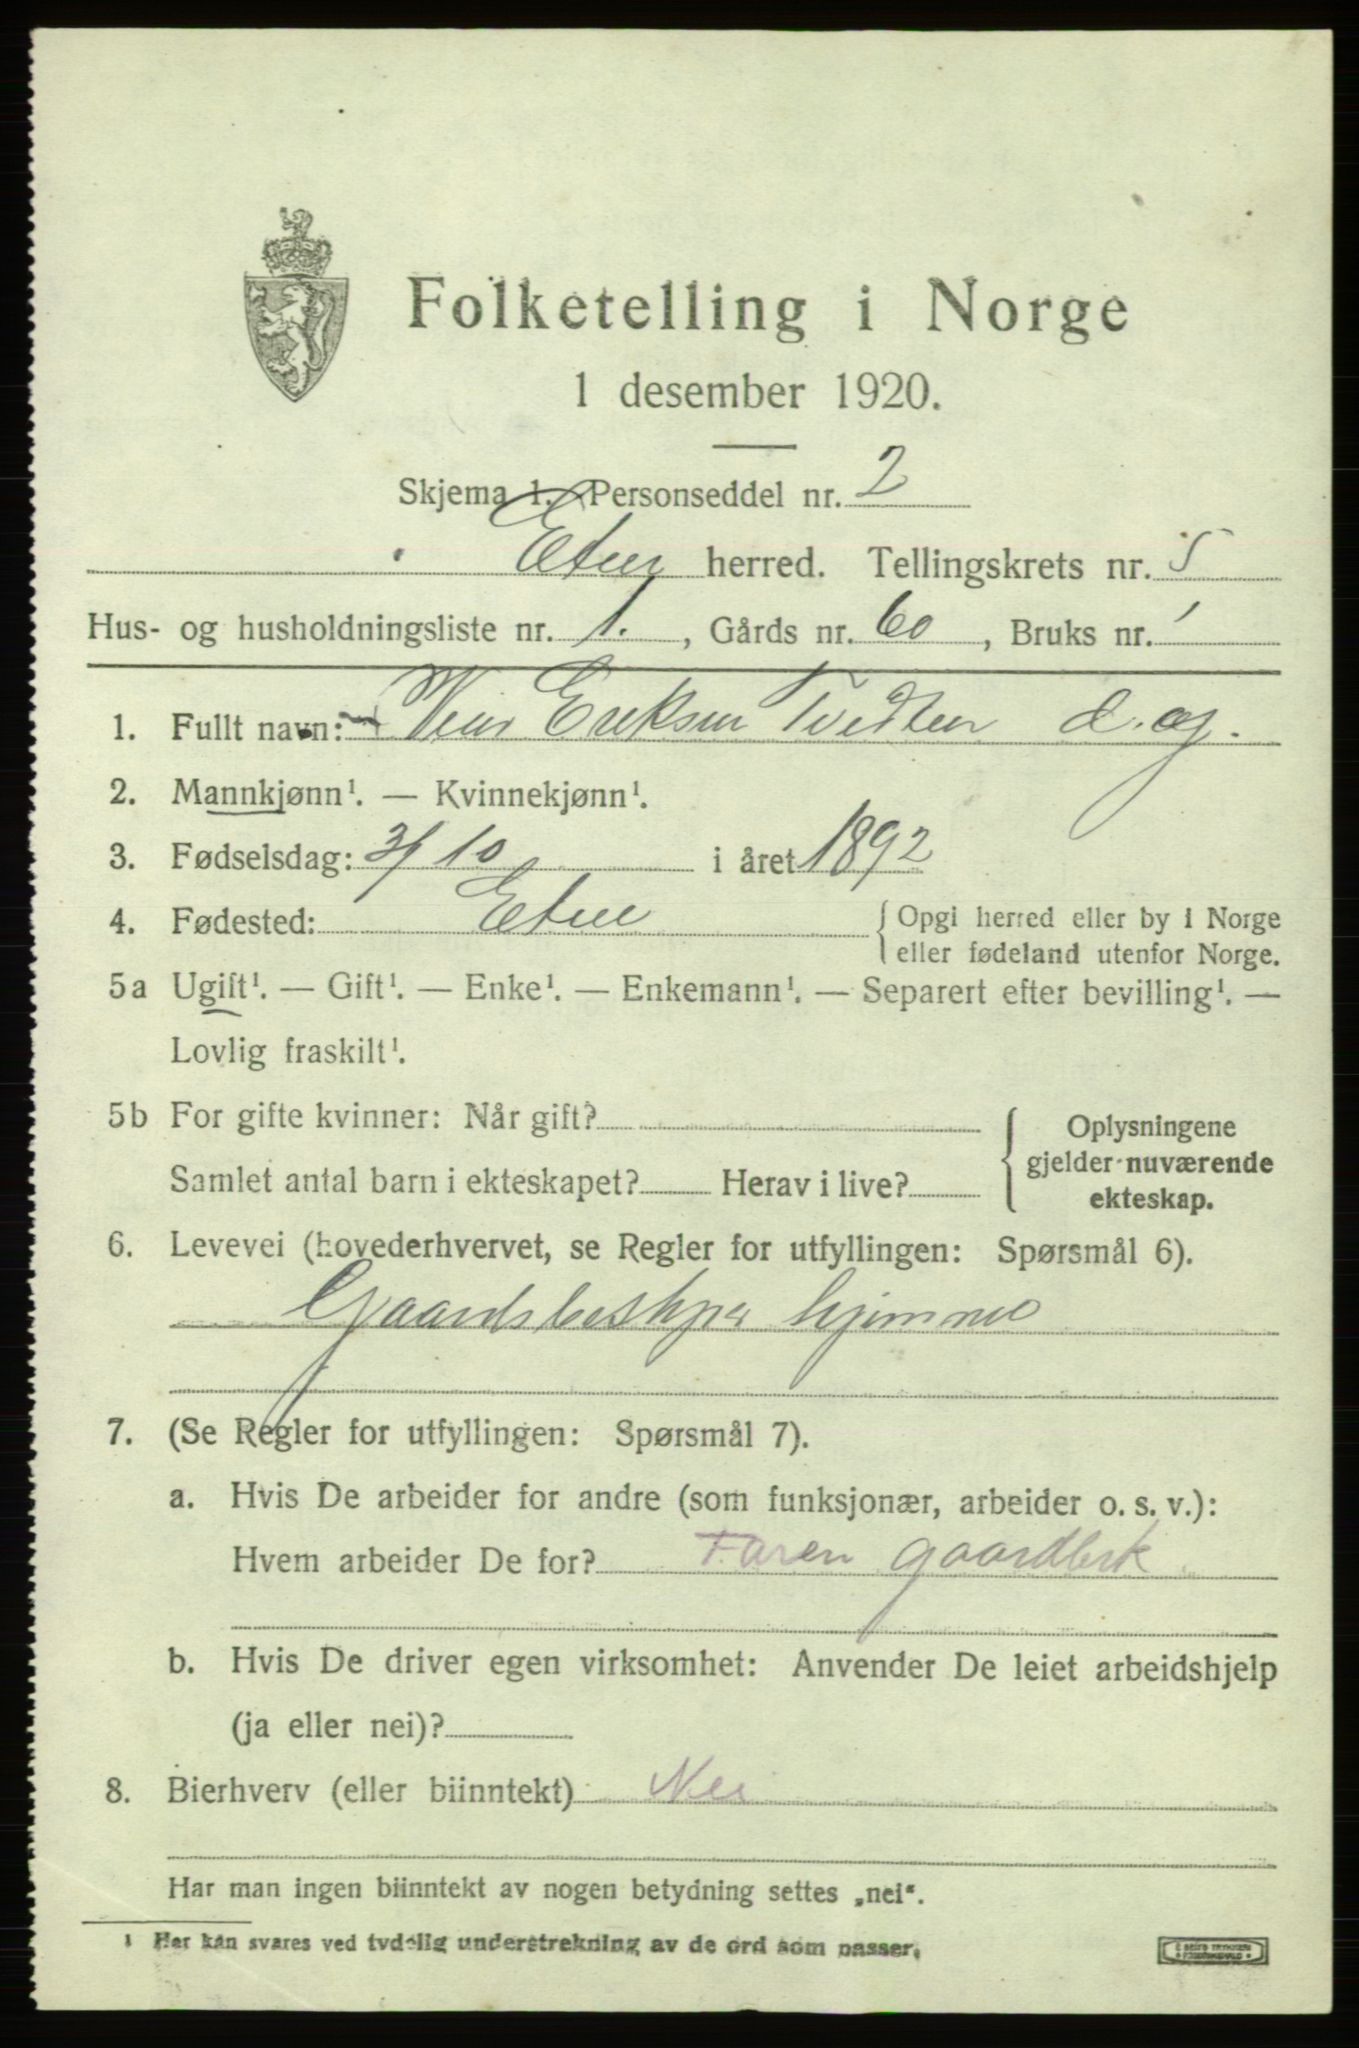 Folketelling i Norge
1 desember 1920.
Skjema 1. Personseddel nr. 2
Etne herred. Tellingskrets nr. 5
Hus- og husholdningsliste nr. 1., Gårds nr. 60, Bruks nr. 1
1. Fullt navn: Eriksen Tvedten
2. Mannkjønn¹. — Kvinnekjønn¹.
3. Fødselsdag: 3/10 i året 1892
4. Fødested: Etne { Opgi herred eller by i Norge
eller fødeland utenfor Norge.
5a Ugift¹. — Gift¹. — Enke¹. — Enkemann¹. — Separert efter bevilling¹. —
Lovlig fraskilt¹.
5b For gifte kvinner: Når gift?
Samlet antal barn i ekteskapet? Herav i live?
Oplysningene
gjelder nuværende
ekteskap.
6. Levevei (hovederhvervet, se Regler for utfyllingen: Spørsmål 6).
Gaardsbestyr hjemme
7. (Se Regler for utfyllingen: Spørsmål 7).
a. Hvis De arbeider for andre (som funksjonær, arbeider o. s. v.):
Hvem arbeider De for? Faren gaardbrk
b. Hvis De driver egen virksomhet: Anvender De leiet arbeidshjelp
(ja eller nei)?
8. Bierhverv (eller biinntekt) Nei
Har man ingen biinntekt av nogen betydning settes „nei“.
¹ Her kan svares ved tydelig understrekning av de ord som passer.